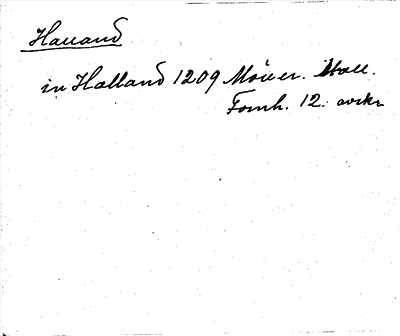 Halland
in Halland 1209 Möller. Hall.
Fornh. 12. avskr.